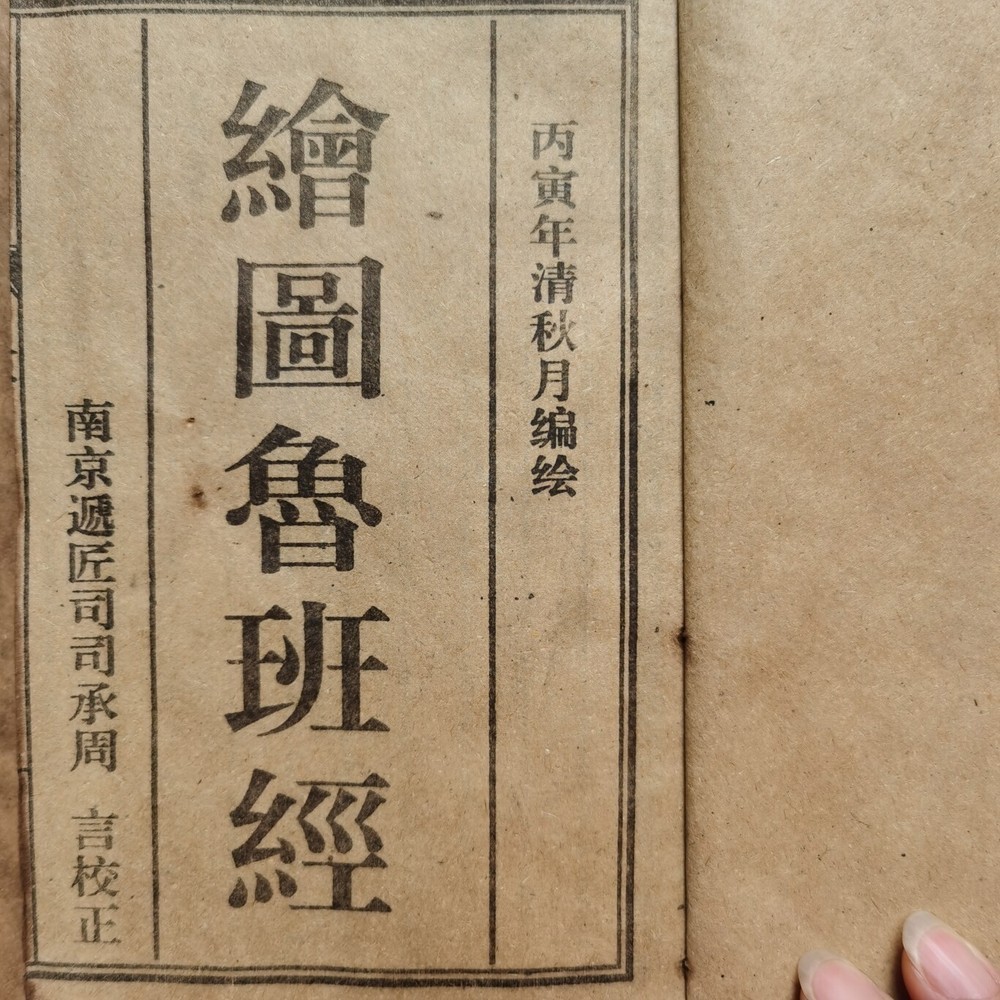 丙寅年清秋月编绘
繪圖魯班經
南京遞匠司司承周 言校正